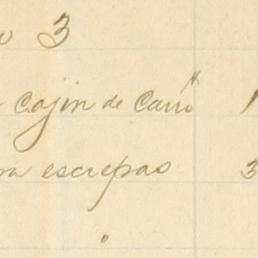 3
Cojin de Carro 1
escrepas 3
"